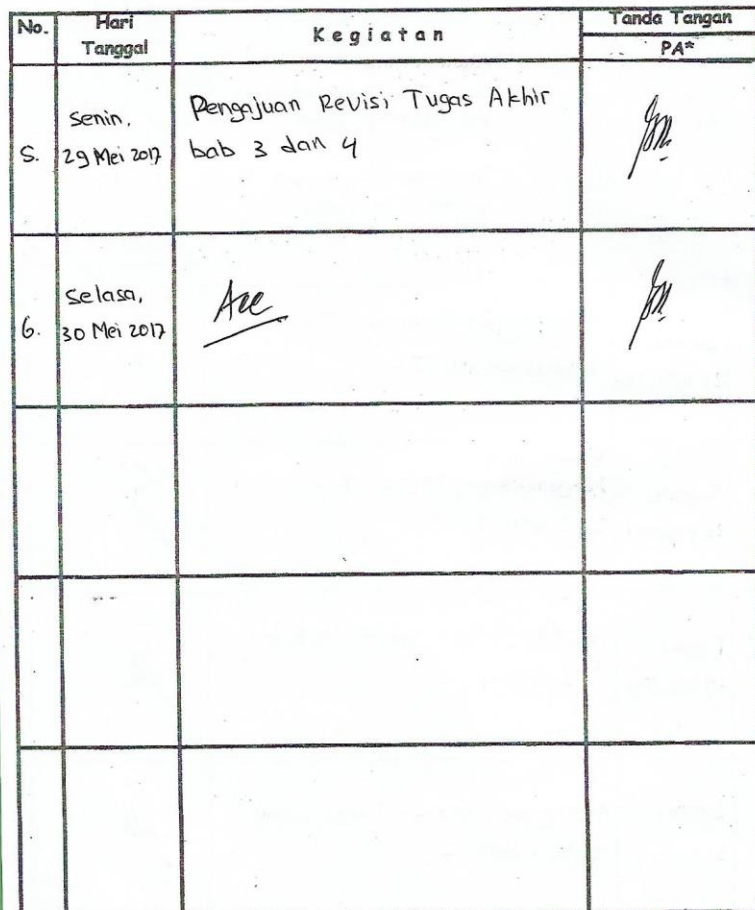 No. Hari Tanggal Kegiatan Tanda Tangan
PA*
5. Senin, 29 Mei 2017 Pengajuan Revisi Tugas Akhir
bab 3 dan 4
6. Selasa, 30 Mei 2017 Acc